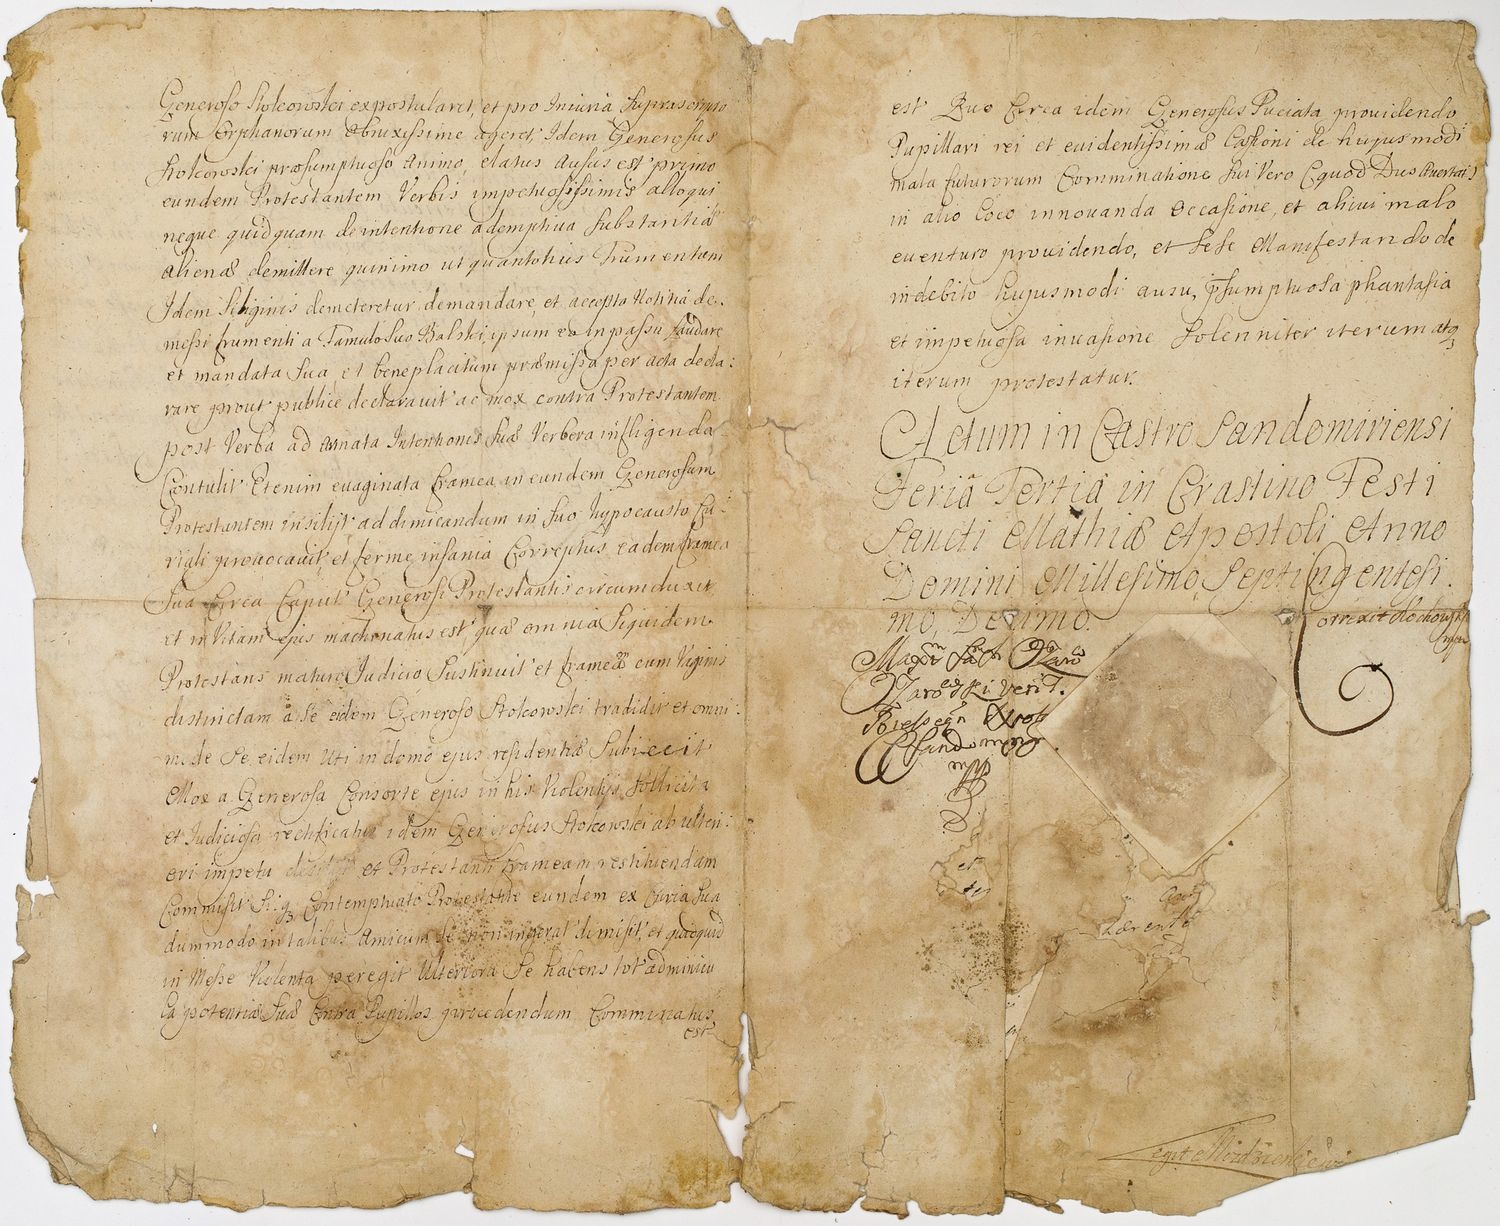 Generoso Stokowski expostularet, et pro Iniuria Suprascripto
rum Orphanorum obnixissime ageret, Idem Generosus
Stokowski præsumptuoso Animo, elatus Ausus est primo
eundem Protestantem Verbis impetuosissimis alloqui
neque quidquam de intentione ademptiua Substantiæ
alienæ demittere quinimo ut quantotius frumentum
Idem Siliginis demeteretur demandare, et accepta Notitia de.
messi frumenti a Famulo Suo Balski, ipsum eo in passu laudare
et mandata Sua, et beneplacitum præmissa per acta decla:
rare prout publice declarauit ac mox contra Protestantem
post Verba ad Innata Intentionis Suæ Verbera infligenda
Contulit Etenim euaginata framea, in eundem Generosum
Protestantem insilijt ad dimicandum in Suo hypocausto Cu:
riali prouocauit, et ferme insania Correptus, eadem framea
Sua Circa Caput Generosi Protestantis circumduxit
et in Vitam ejus machinatus est, quæ omnia Siquidem
Protestans maturo Judicio Sustinuit et frameam cum Vaginis
districtam a Se eidem Generoso Stokowski tradidit et omni:
mode Se eidem Uti in domo ejus residentiæ Subiecit
Mox a Generosa Consorte ejus in his Violentijs Sollicita
et Judiciosa rectificatus idem Generosus Stokowski ab ulteri:
ori impetu et Protestanti frameam restituendam
Commisit Sicq Contemptuato Protestante eundem ex Curia Sua
dummodo in talibus Amicum Se non ingerat dimisit, et quidquid
in Messe Violenta peregit Ulteriora Se habens tot adminicu
la potentiæ Suæ Contra Pupillos procedendum Comminatus
est
est Quo Circa idem Generosus Puciata prouidendo
Pupillari rei et euidentissimæ Læsioni de hujusmodi
mala futurorum Comminatione Sui Vero Equod Deus Auertat)
in alio Loco innouanda Occasione, et aliui malo
euenturo prouidendo, et Sese Manifestando de
indebito hujusmodi ausu, psumptuosa phantasia
et impetuosa inuasione Solenniter iterum atq
iterum protestatur.
Actum in Castro Sandomiriensi
Feria Tertia in Crastino Festi
Sancti Mathiæ Apostoli Anno
Domini Millesimo, Septingentesi.
mo, Decimo.
Correxit Rochowski
mp
mp
et
Legit